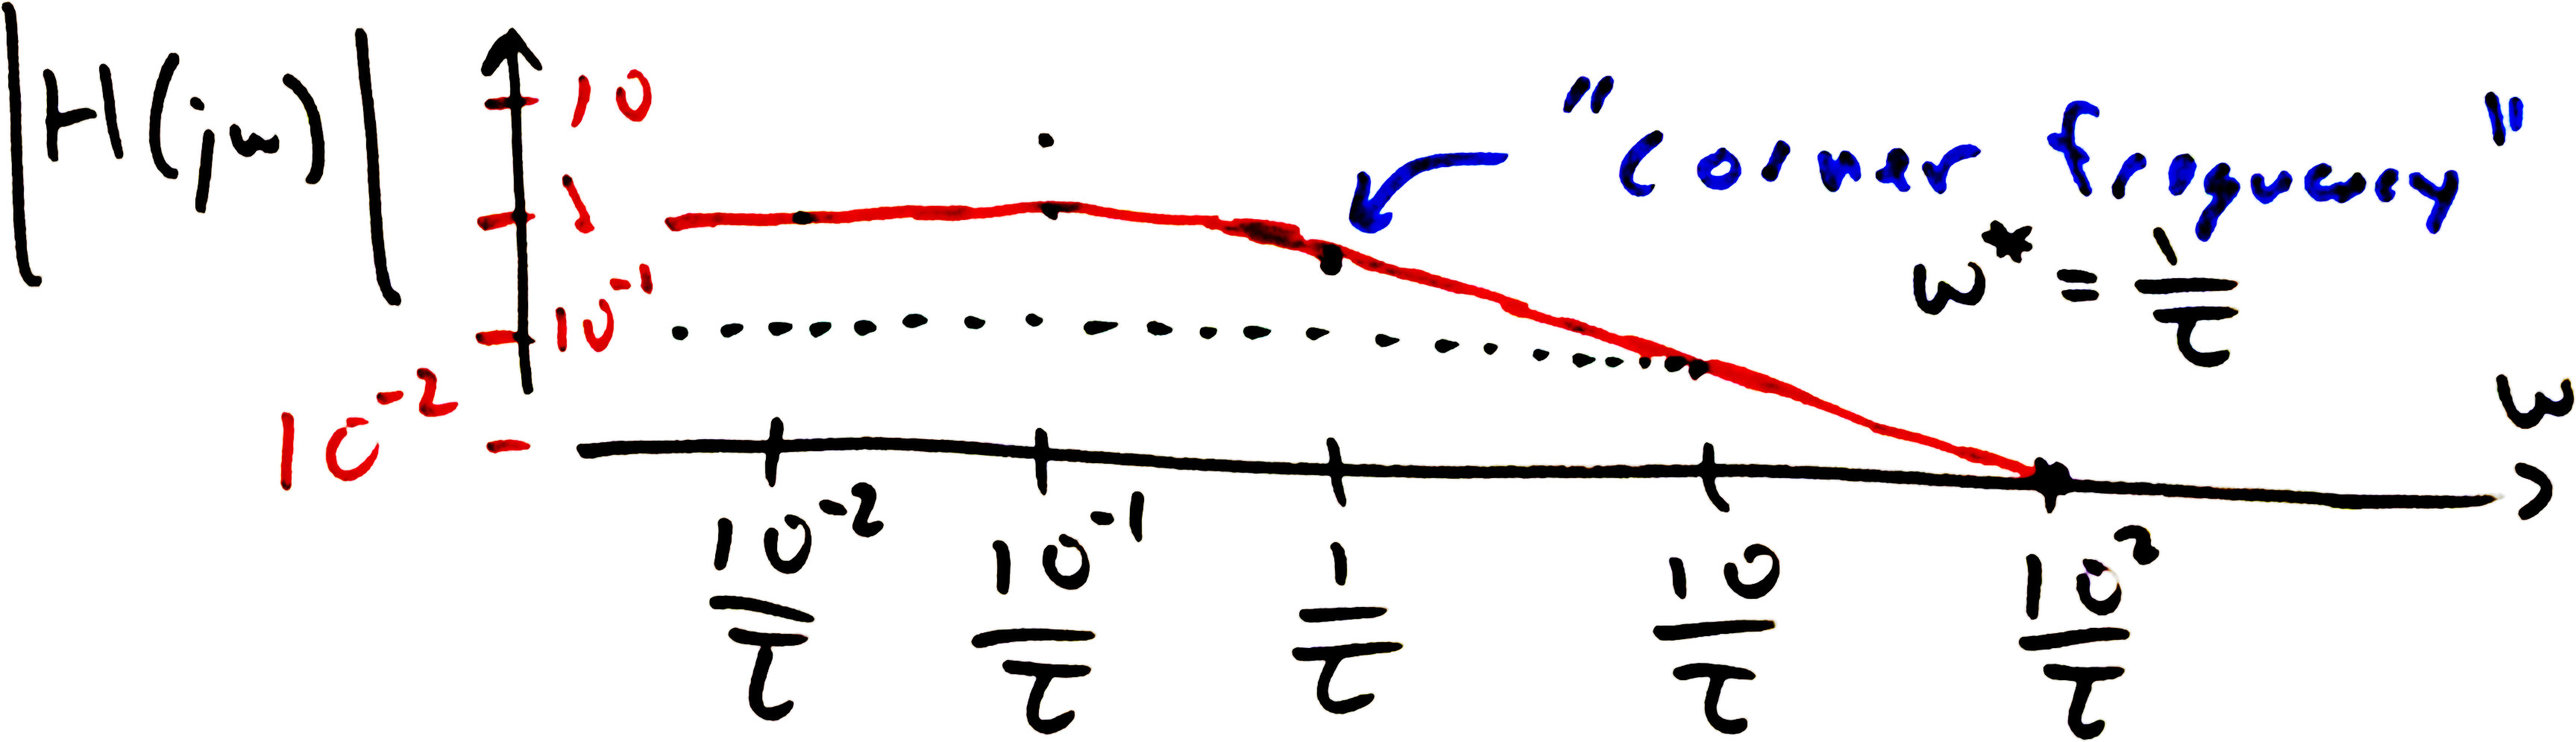 |H(jω)|
10
1
10⁻¹
10⁻²
"Corner frequency"
ω* = 1/τ
ω
10⁻²/τ 10⁻¹/τ 1/τ 10/τ 10²/τ